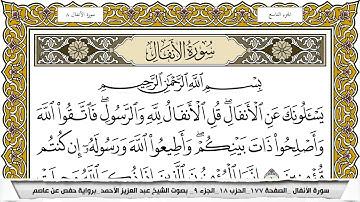 الجزء التاسع
سورة الأنفال ٨
سُورَةُ الأَنفَالِ
بِسْمِ اللَّهِ الرَّحْمَٰنِ الرَّحِيمِ
يَسْـَٔلُونَكَ عَنِ ٱلْأَنفَالِ ۖ قُلِ ٱلْأَنفَالُ لِلَّهِ وَٱلرَّسُولِ ۖ فَٱتَّقُوا۟ ٱللَّهَ
وَأَصْلِحُوا۟ ذَاتَ بَيْنِكُمْ ۖ وَأَطِيعُوا۟ ٱللَّهَ وَرَسُولَهُۥٓ إِن كُنتُم
سورة الأنفال _ الصفحة ١٧٧_ الحزب ١٨_ الجزء ٩_ بصوت الشيخ عبد العزيز الأحمد _برواية حفص عن عاصم